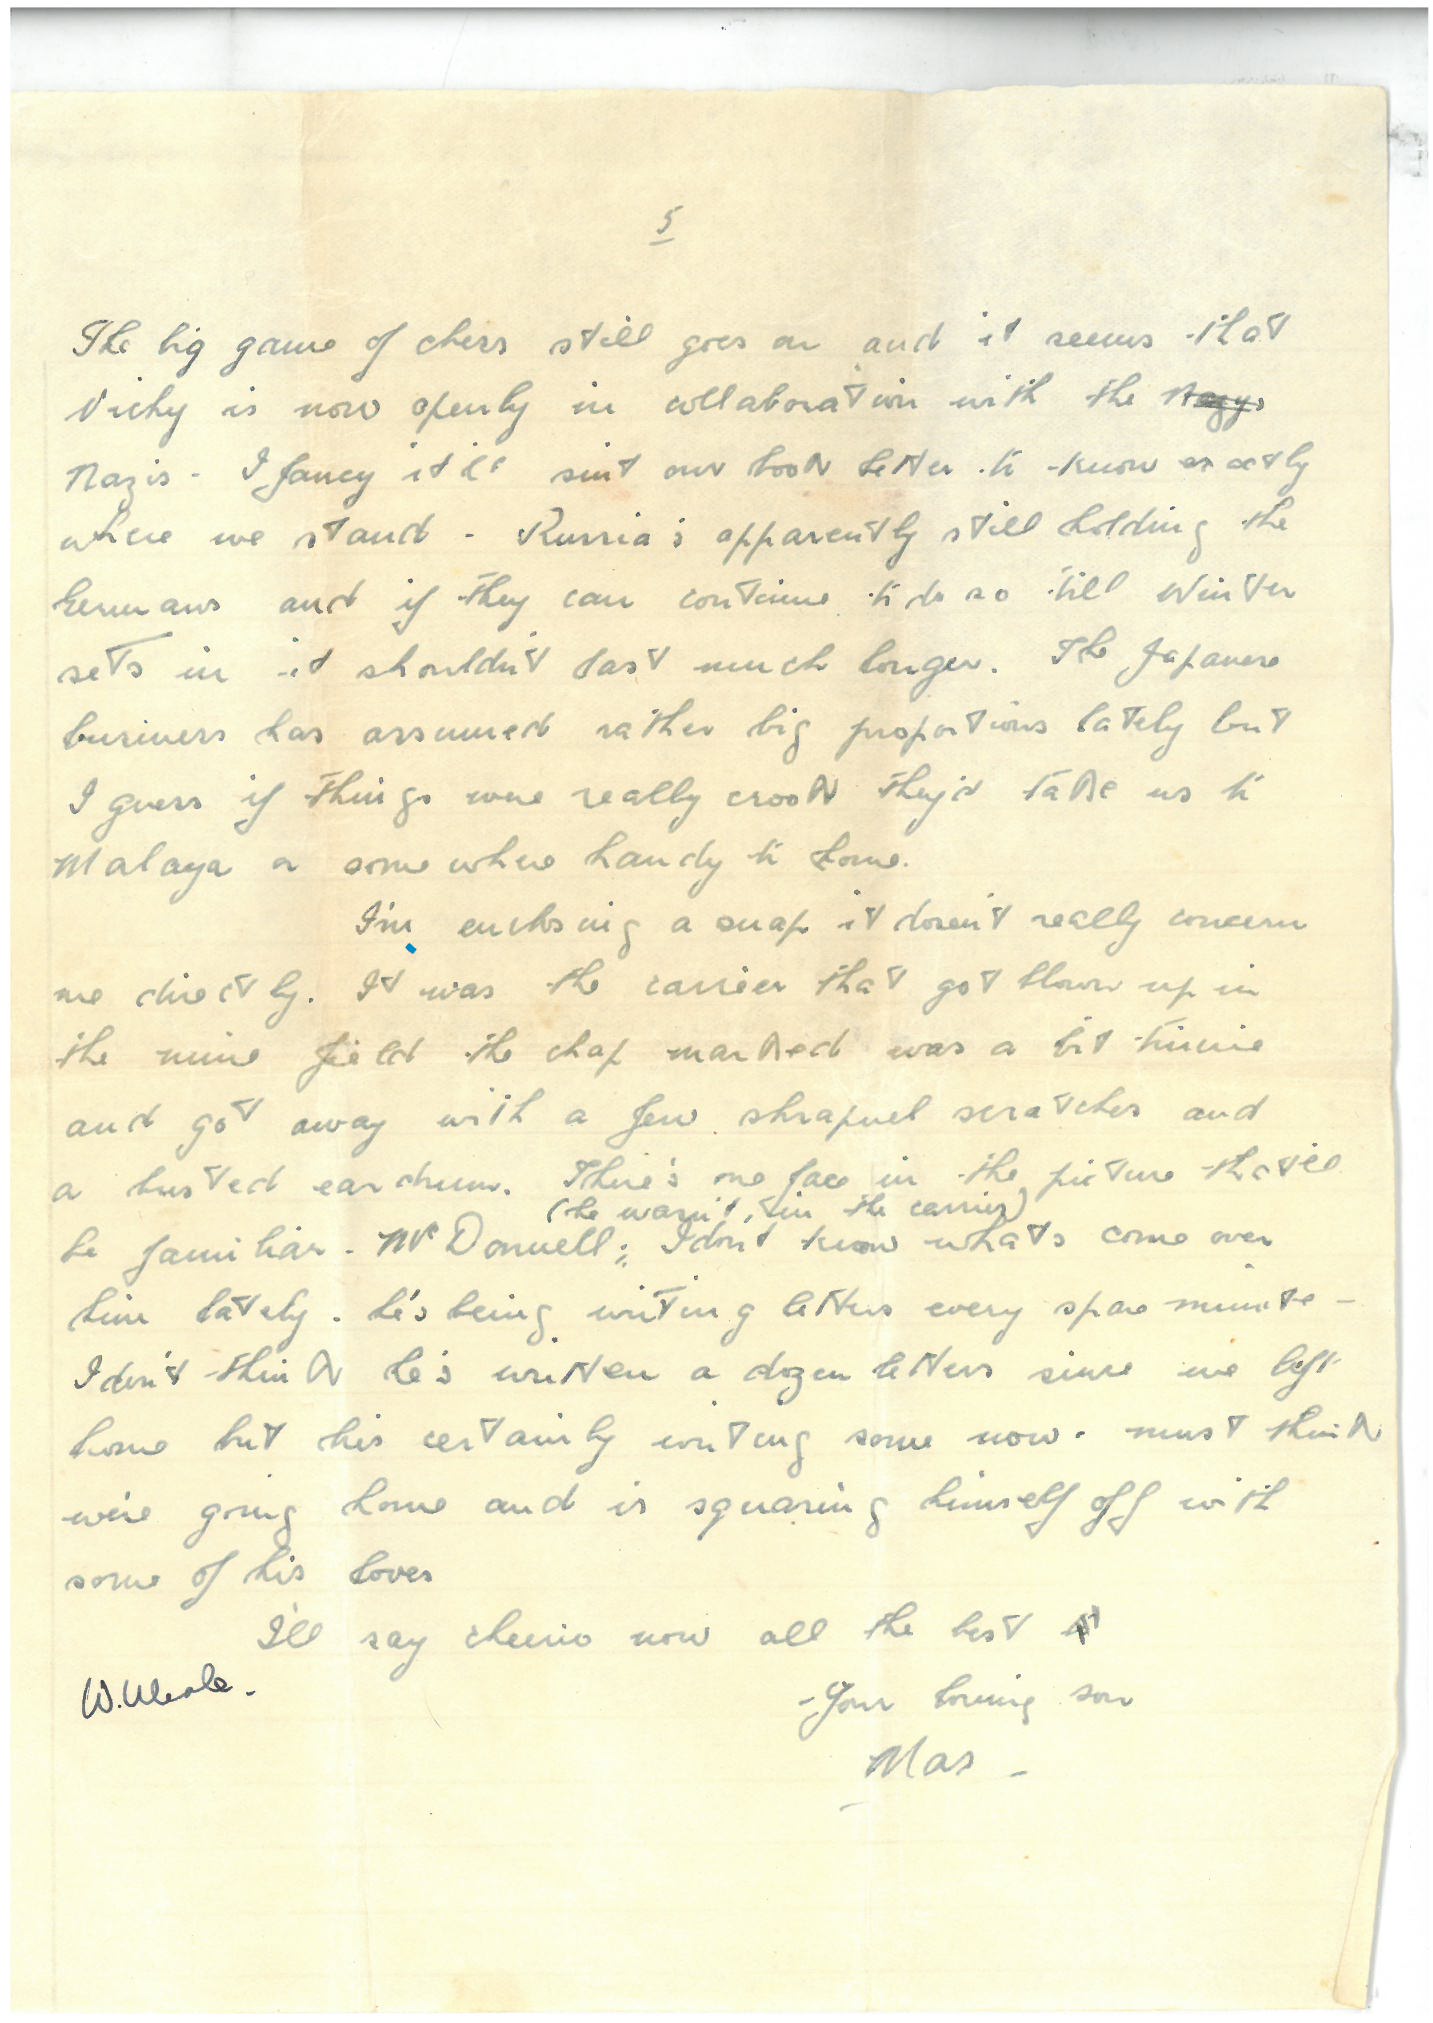 5
The big game of chess still goes on and it seems that
Vichy is now openly in collaboration with the Nazys
Nazis - I fancy it'll suit our book better to know exactly
where we stand - Russia's apparently still holding the
Germans and if they can continue to do so till Winter
sets in it shouldn't last much longer. The Japanese
business has assumed rather big proportions lately but
I guess if things were really crook they'd take us to
Malaya or somewhere handy to home.
I'm enclosing a snap it doesn't really concern
me directly. It was the carrier that got blown up in
the mine field the chap marked was a bit
and got away with a few shrapnel scratches and
a busted ear drum. There's one face in the picture that'll
(he wasn't in the carrier)
be familiar - McDonnell; I dont know whats come over
him lately - he's being writing letters every spare minute -
I don't think he's written a dozen letters since we left
home but his certainly writing some now - must think
we're going home and is squaring himself off with
some of his loves
I'll say cheerio now all the best
Your loving son
Mas -